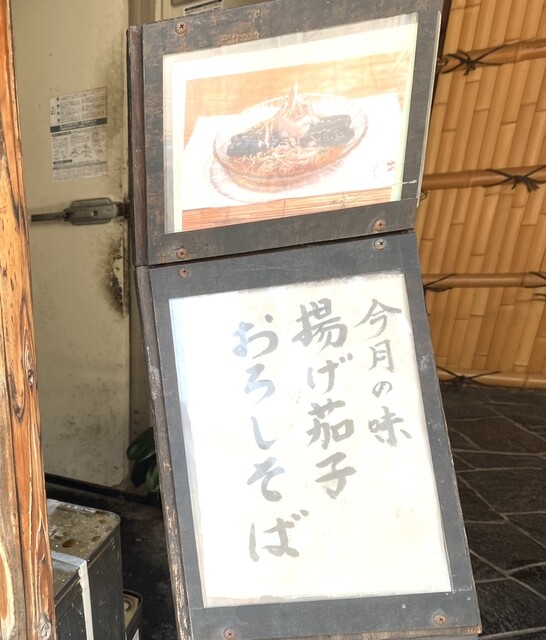 今月の味
揚げ茄子
おろしそば